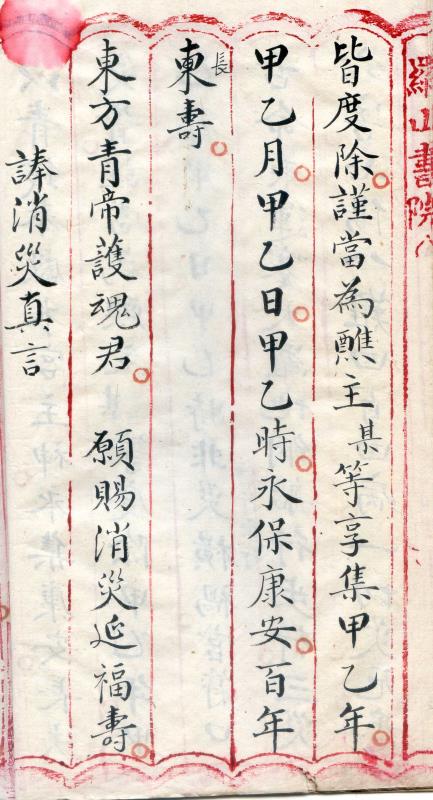 羅山書院
皆度除。謹當為醮主某等享集甲乙年。
甲乙月。甲乙日。甲乙時。永保康安。百年
長東壽。
東方青帝護魂君。願賜消災延福壽。
諱消災真言